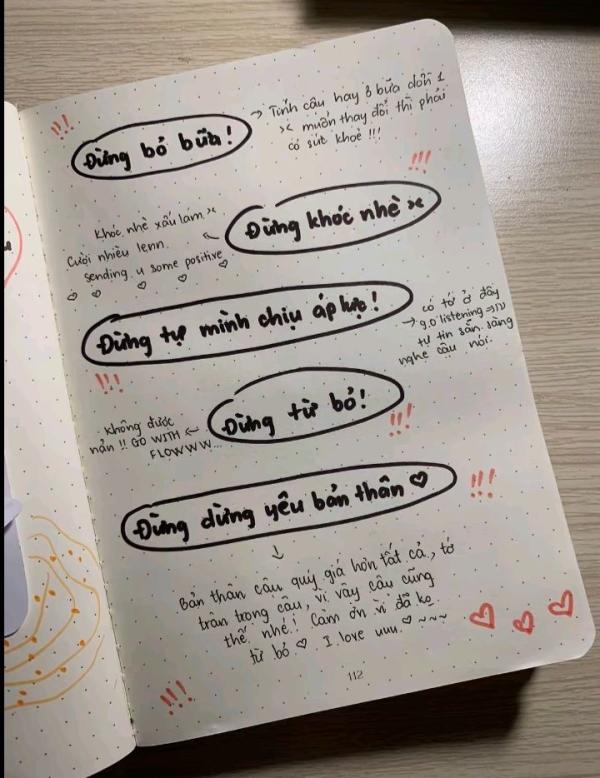 !!!
Đừng bỏ bữa!
→ Tính cậu hay 3 bữa dồn 1
>< muốn thay đổi thì phải
có sức khoẻ !!!
!!!
Đừng khóc nhè ><
Khóc nhè xấu lắm ><
Cười nhiều lenn.
sending u some positive
Đừng tự mình chịu áp lực!
có tớ ở đây
→ 9.0 listening =))
tự tin sẵn sàng
nghe cậu nói.
!!!
Đừng từ bỏ!
!!!
Không được
nản !! GO WITH
FLOWWW...
Đừng dừng yêu bản thân ♡
!!!
Bản thân cậu quý giá hơn tất cả, tớ
trân trọng cậu, vì vậy cậu cũng
thế nhé! Cảm ơn vì đã ko
từ bỏ ♡ I love uuu. ♡ ~~~
!!!
112